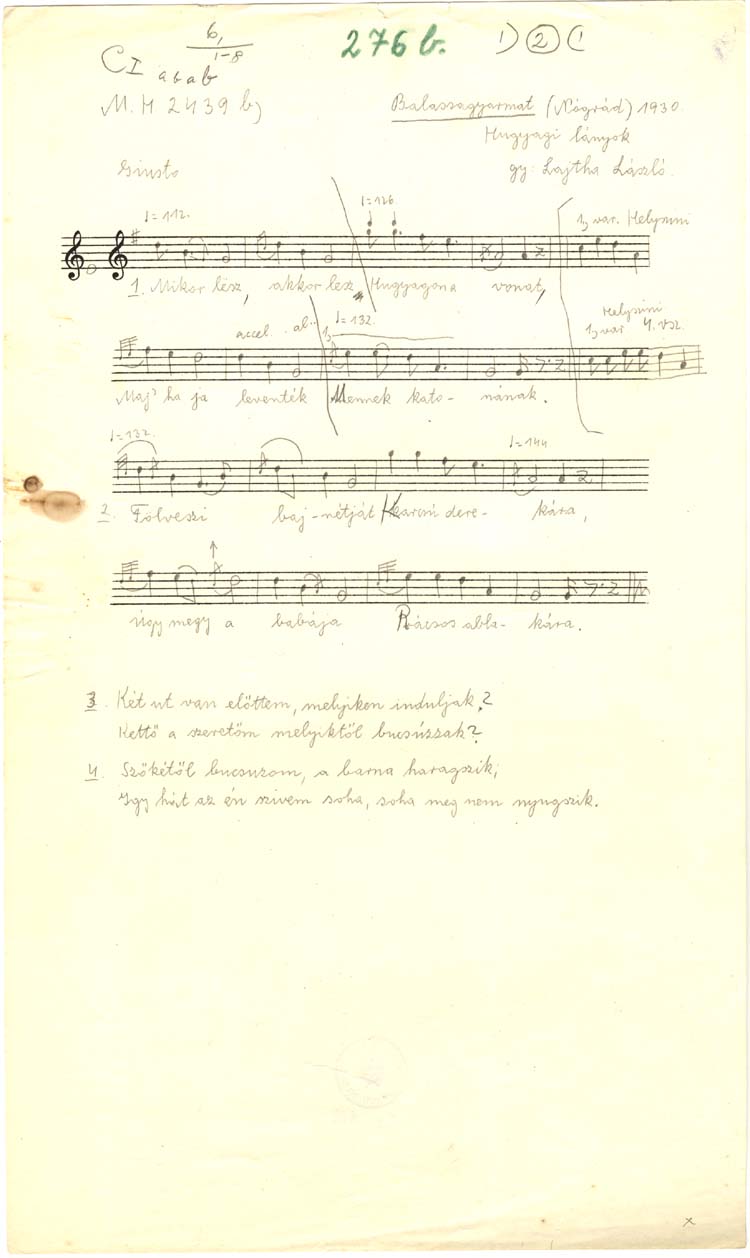 6,
1-8
276 b.
1) (2) (1
CI a b a b
M. H 2439 b)
Balassagyarmat (Nógrád) 1930.
Hugyagi lányok
gy: Lajtha László.
Giusto
♩=112.
♩=126
1, var. Helyszini
1. Mikor lész, akkor lesz Hugyagona vonat,
accel. al..
1, ♩=132.
Helyszini
1, var 4. vsz.
Maj' ha ja leventék Mennek kato- nának.
♩=132.
♩=144
2. Fölveszi baj-nétját Karcsú dere- kára,
Úgy megy a babája Rácsos abla- kára.
3. Két ut van előttem, melyiken induljak?
Kettő a szeretőm melyiktől bucsúzzak?
4. Szőkétől bucsuzom, a barna haragszik,
Igy hát az én szivem soha, soha meg nem nyugszik.
x